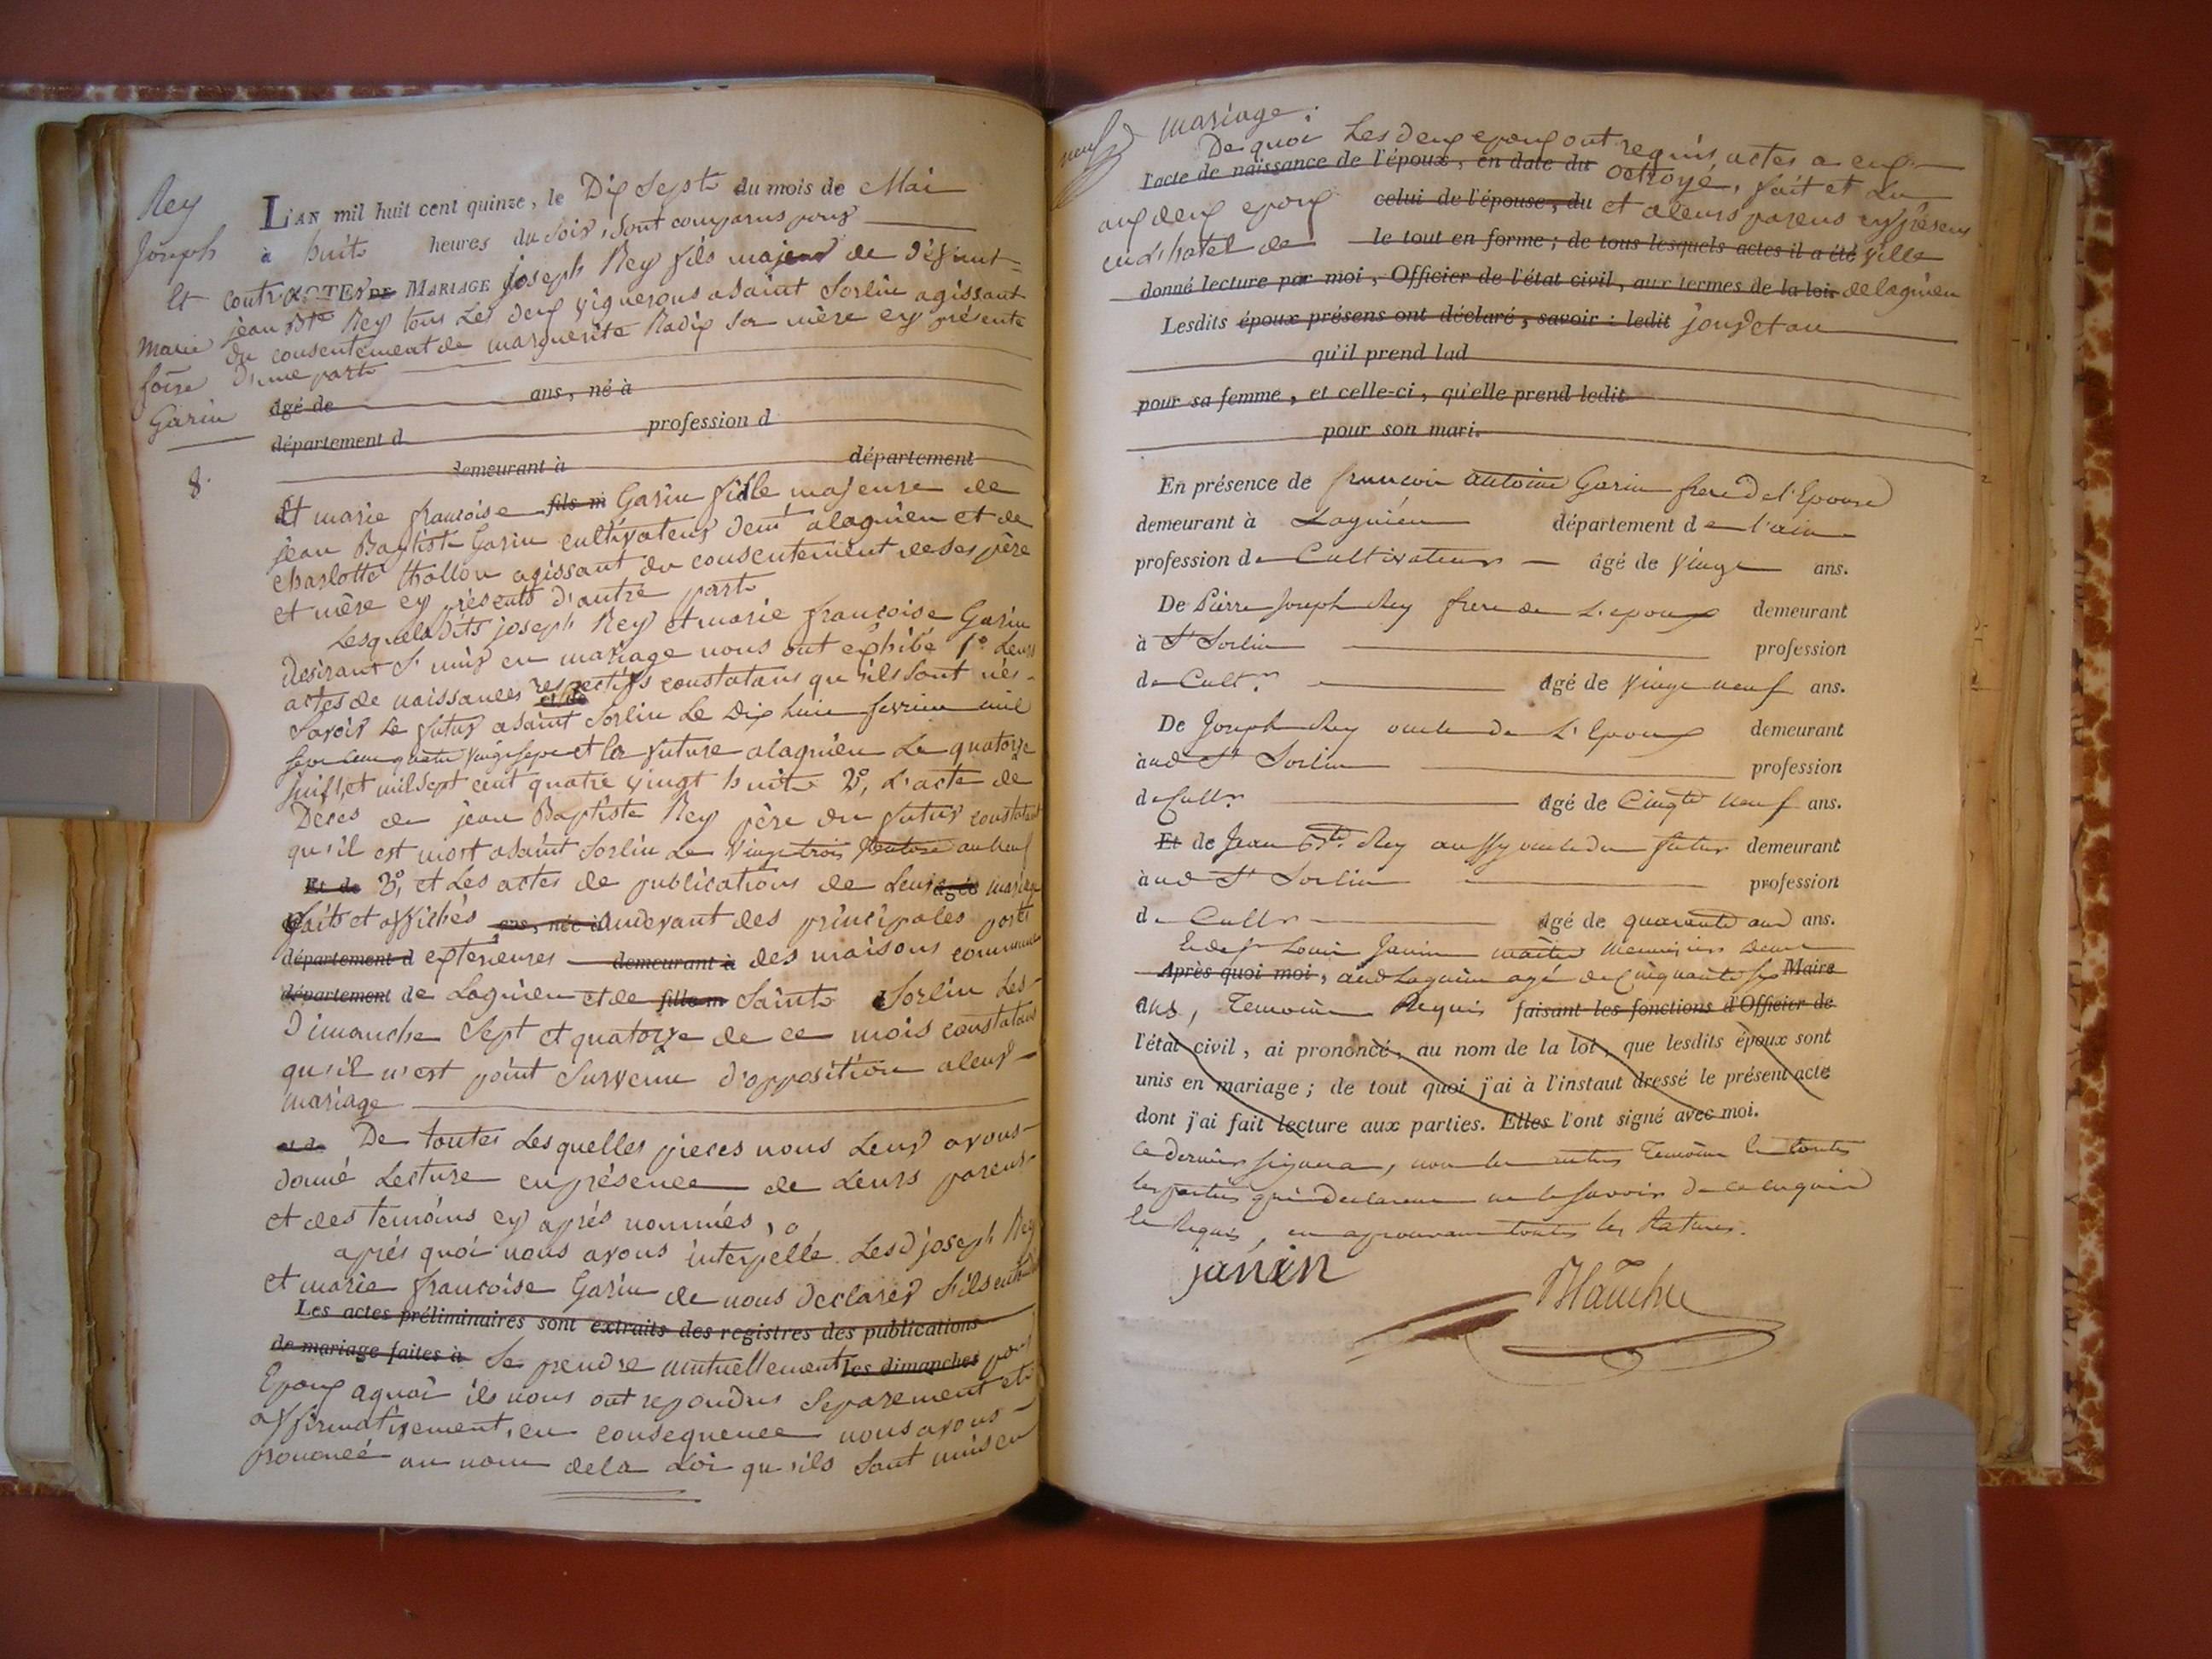 Rey
Joseph
et
Marie
foise
Garin
8.
L'AN mil huit cent quinze, le Dix Sept du mois de Mai
à huit heures du soir, sont comparus pour
contr. ACTES DE MARIAGE joseph Rey fils majeur de défunt
jean Bte Rey tous les deux vignerons a saint Sorlin agissant
du consentement de marguerite Radix sa mère cy présente
d'une part
agé de ans, né à
département d profession d
demeurant à département
Et marie francoise fils m Garin fille majeure de
jean Baptiste Garin cultivateur demt a lagnieu et de
charlotte thollon agissant du consentement de ses père
et mère cy présents d'autre part
Lesquels dits joseph Rey et marie francoise Garin
desirant s'unir en mariage nous ont exhibé 1o Leurs
actes de naissances respectifs constatans qu'ils sont nés
savoir le futur a saint Sorlin le Dix huit fevrier mil
sept cent quatre vingt sept et la future a lagnieu le quatorze
juillet mil sept cent quatre vingt huit 2o, L'acte de
Deces de jean Baptiste Rey père du futur constatant
qu'il est mort a saint Sorlin le vingt trois an neuf
Et de 3o, et Les actes de publications de Leur agée mariage
faits et affichés ans, née à audevant des principales portes
département d extérieures demeurant à des maisons communes
département de Lagnieu et de fille m Saint Sorlin Les
Dimanche Sept et quatorze de ce mois constatans
qu'il n'est point survenu d'opposition a leur
mariage
De toutes Lesquelles pieces nous Leur avons
donné Lecture en présence de Leurs parens
et des temoins cy après nommés,
après quoi nous avons interpellé Lesd joseph Rey
et marie francoise Garin de nous declarer s'ils
Les actes préliminaires sont extraits des registres des publications
de mariage faites à se prendre mutuellement les dimanches pour
Epoux aquoi ils nous ont repondus separement et
affirmativement, en consequence nous avons
prononcé au nom de la Loi qu'ils sont unis en
neuf
mariage.
De quoi Les deux epoux ont requis actes a eux
l'acte de naissance de l'époux, en date du octroyé, fait et Lu
aux deux epoux celui de l'épouse, du et aleurs parens cy présens
en L'hotel de le tout en forme ; de tous lesquels actes il a été ville
donné lecture par moi, Officier de l'état civil, aux termes de la loi. de lagnieu
Lesdits époux présens ont déclaré, savoir : ledit jour et an
qu'il prend lad
pour sa femme, et celle-ci, qu'elle prend ledit
pour son mari.
En présence de francois antoine Garin frere de l'Epouse
demeurant à Lagnieu département de l'ain
profession de Cultivateur agé de vingt ans.
De Pierre Joseph Rey frere de L'epoux demeurant
à St Sorlin profession
de Cultr. agé de vingt neuf ans.
De Joseph Rey oncle de L'Epoux demeurant
aud St Sorlin profession
de Cultr. agé de Cinqte neuf ans.
Et de Jean Bte. Rey aussy oncle du futur demeurant
aud St Sorlin profession
de Cultr agé de quarante ans.
Et de Sr Louis Janin maître menuisier demt
Après quoi moi, aud Lagnieu agé de Cinquante six Maire
ans, Temoins Requis faisant les fonctions d'Officier de
l'état civil, ai prononcé, au nom de la loi, que lesdits époux sont
unis en mariage ; de tout quoi j'ai à l'instaut dressé le présent acte
dont j'ai fait lecture aux parties. Elles l'ont signé avec moi.
Ce dernier signera, non les autres Temoins et toutes
les parties qui declarerent ne le savoir de ce enquis
et Requis, en aprouvant toutes les Ratures.
janin
Blanche